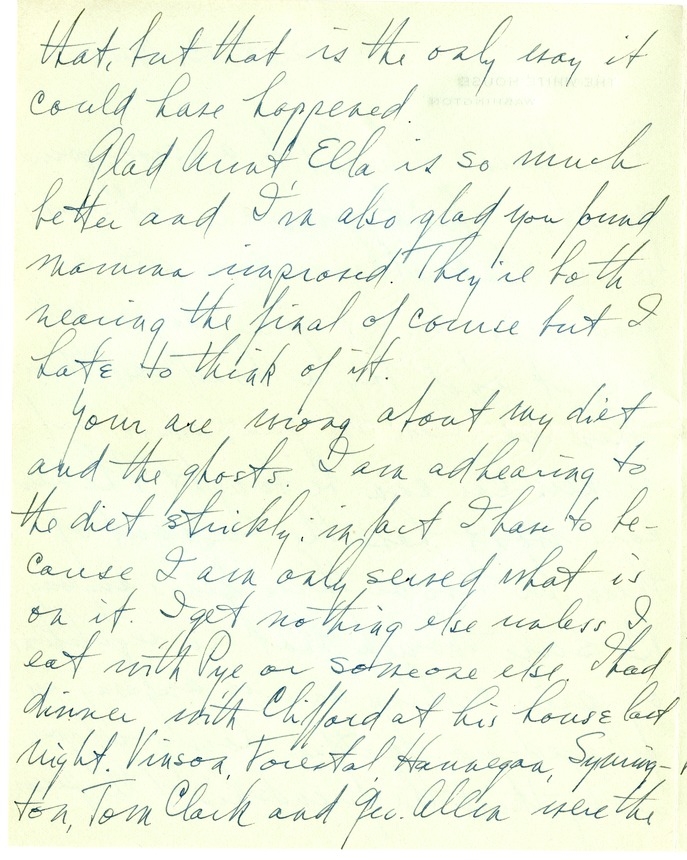 that, but that is the only way it
could have happened.
Glad Aunt Ella is so much
better and I'm also glad you found
mamma improved. They're both
nearing the final of course but I
hate to think of it.
Your are wrong about my diet
and the ghosts. I am adhearing to
the diet strickly: in fact I have to be-
cause I am only served what is
on it. I get nothing else unless I
eat with Pye or someone else. I had
dinner with Clifford at his house last
night. Vinson, Forestal, Hannegan, Syming-
ton, Tom Clark and Geo. Allen were the